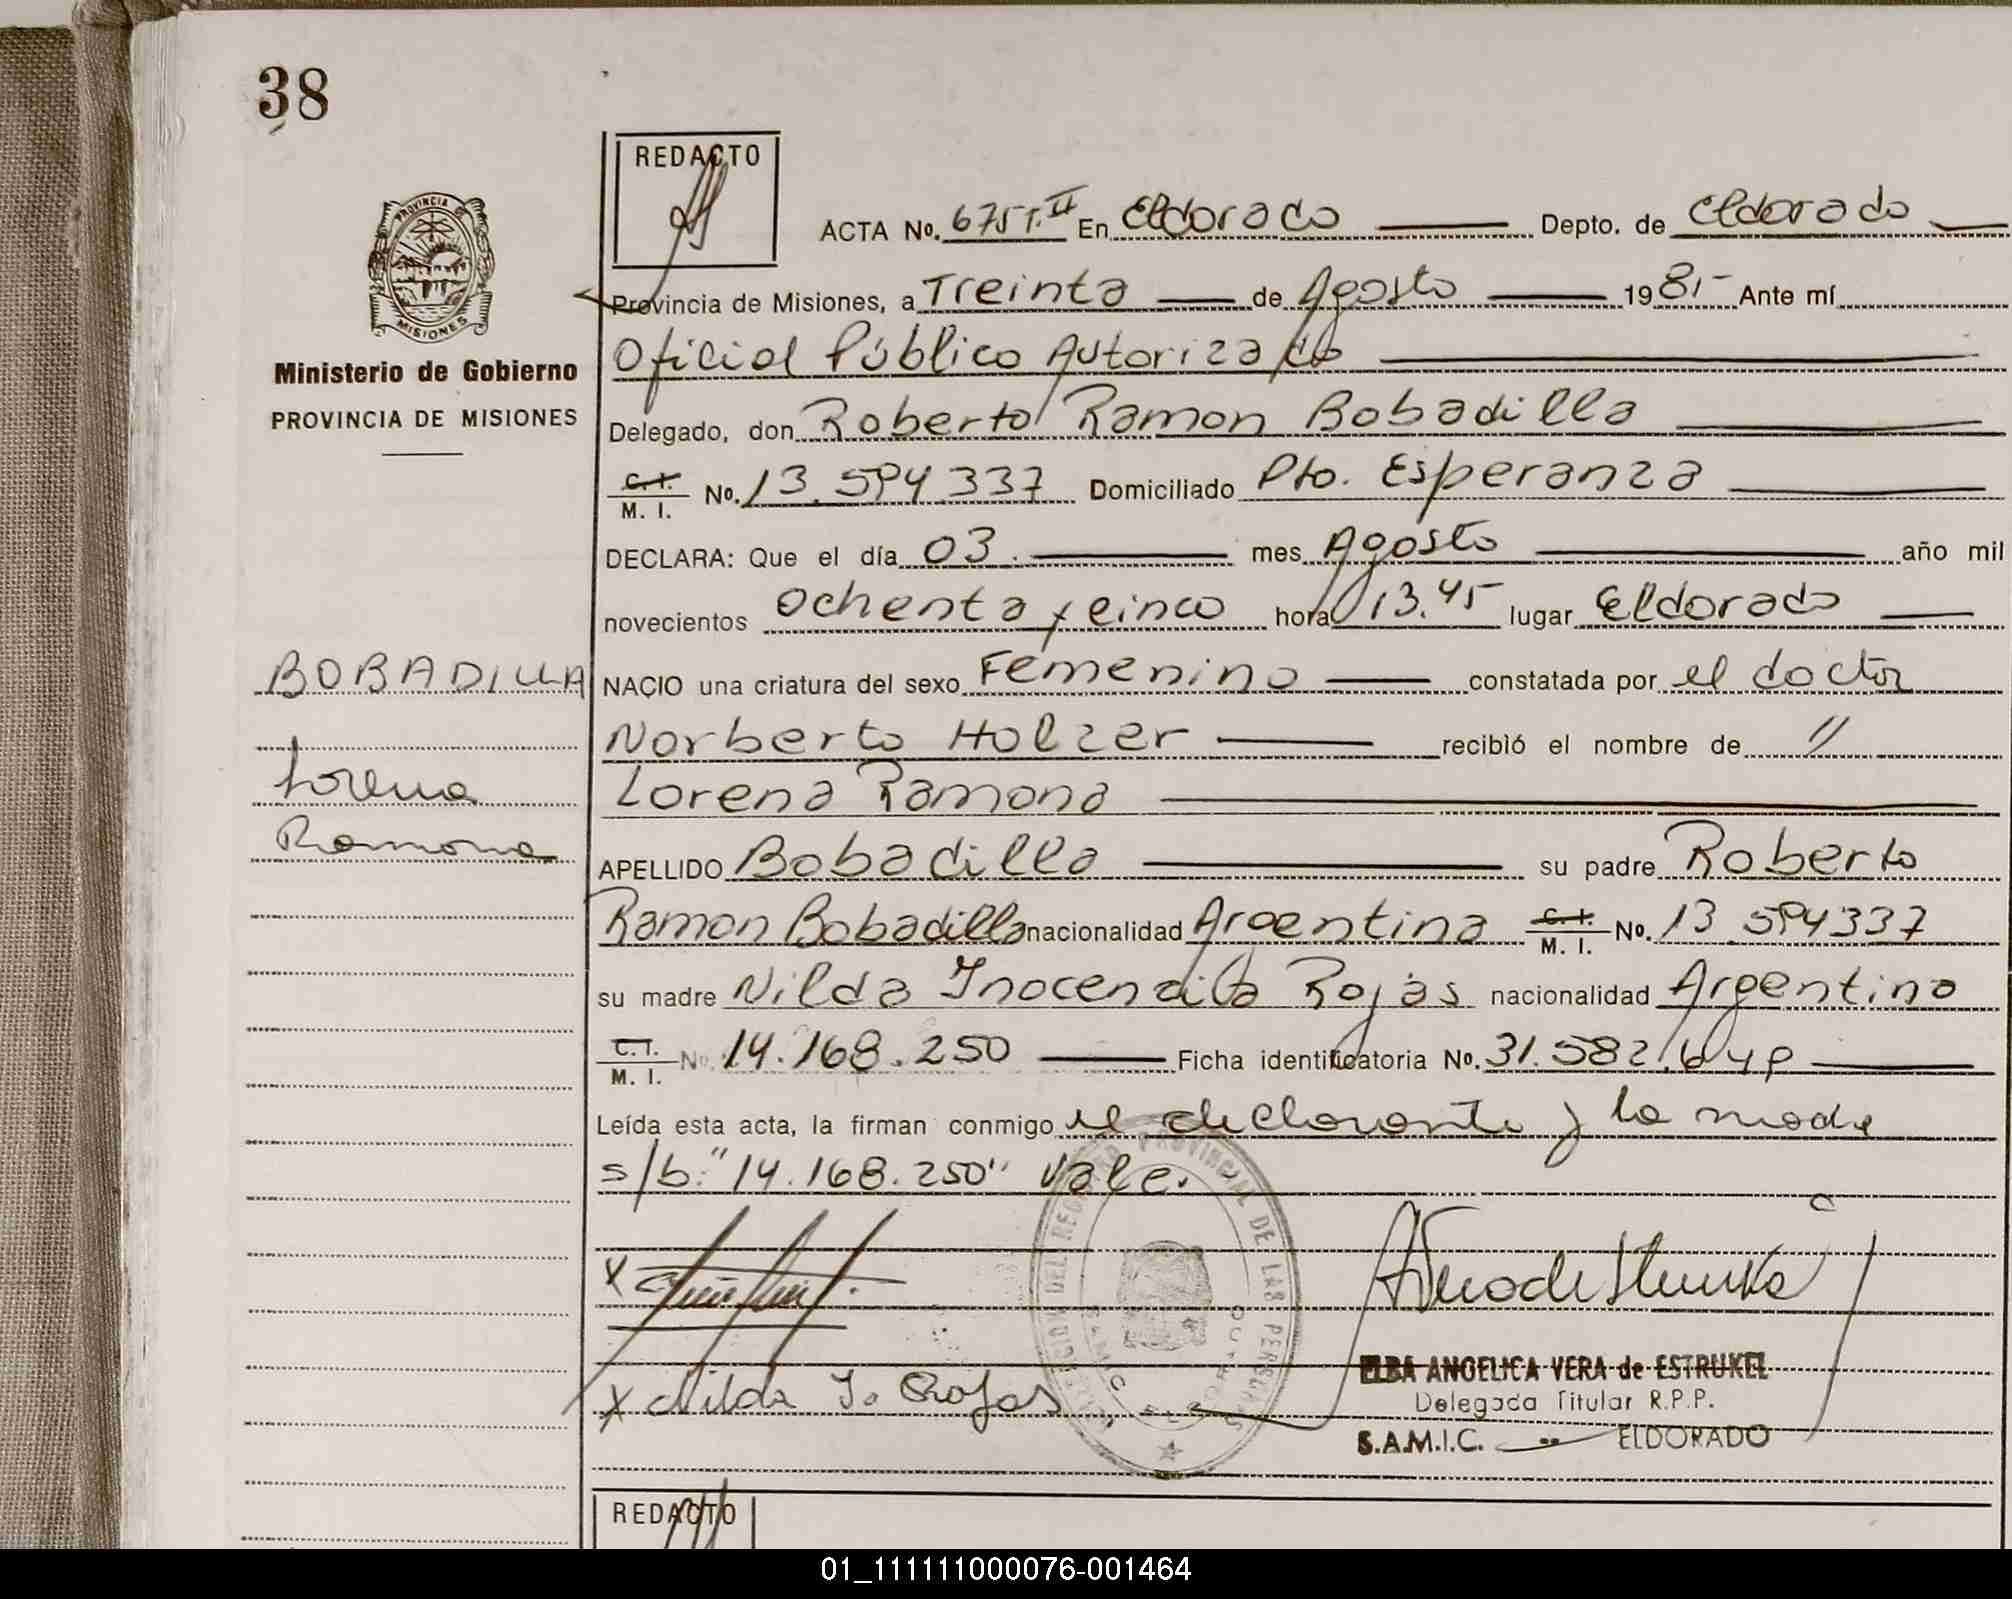 38
REDACTO
ACTA No. 675 T. II En Eldorado Depto. de Eldorado
Provincia de Misiones, a Treinta de Agosto 198 Ante mí
Oficial Público Autorizado
Delegado, don Roberto Ramon Bobadilla
C. I. / M. I. No. 13.594.337 Domiciliado Pto. Esperanza
DECLARA: Que el día 03. mes Agosto año mil
novecientos Ochenta y cinco hora 13.45 lugar Eldorado
NACIO una criatura del sexo Femenino constatada por el doctor
Norberto Holzer recibió el nombre de //
Lorena Ramona
APELLIDO Bobadilla su padre Roberto
Ramon Bobadilla nacionalidad Argentina C. I. / M. I. No. 13.594337
su madre Nilda Inocencia Rojas nacionalidad Argentina
C. I. / M. I. No. 14.168.250 Ficha identificatoria No. 31.582.649
Leída esta acta, la firman conmigo el declarante y la madre
s/b: "14.168.250" Vale.
X
X Nilda I. Rojas
ELBA ANGELICA VERA de ESTRUKEL
Delegada Titular R.P.P.
S.A.M.I.C. ELDORADO
PROVINCIA DE
MISIONES
Ministerio de Gobierno
PROVINCIA DE MISIONES
BOBADILLA
Lorena
Ramona
DEL REGISTRO PROVINCIAL DE LAS PERSONAS
SAMIC ELDORADO
REDACTO
01_111111000076-001464